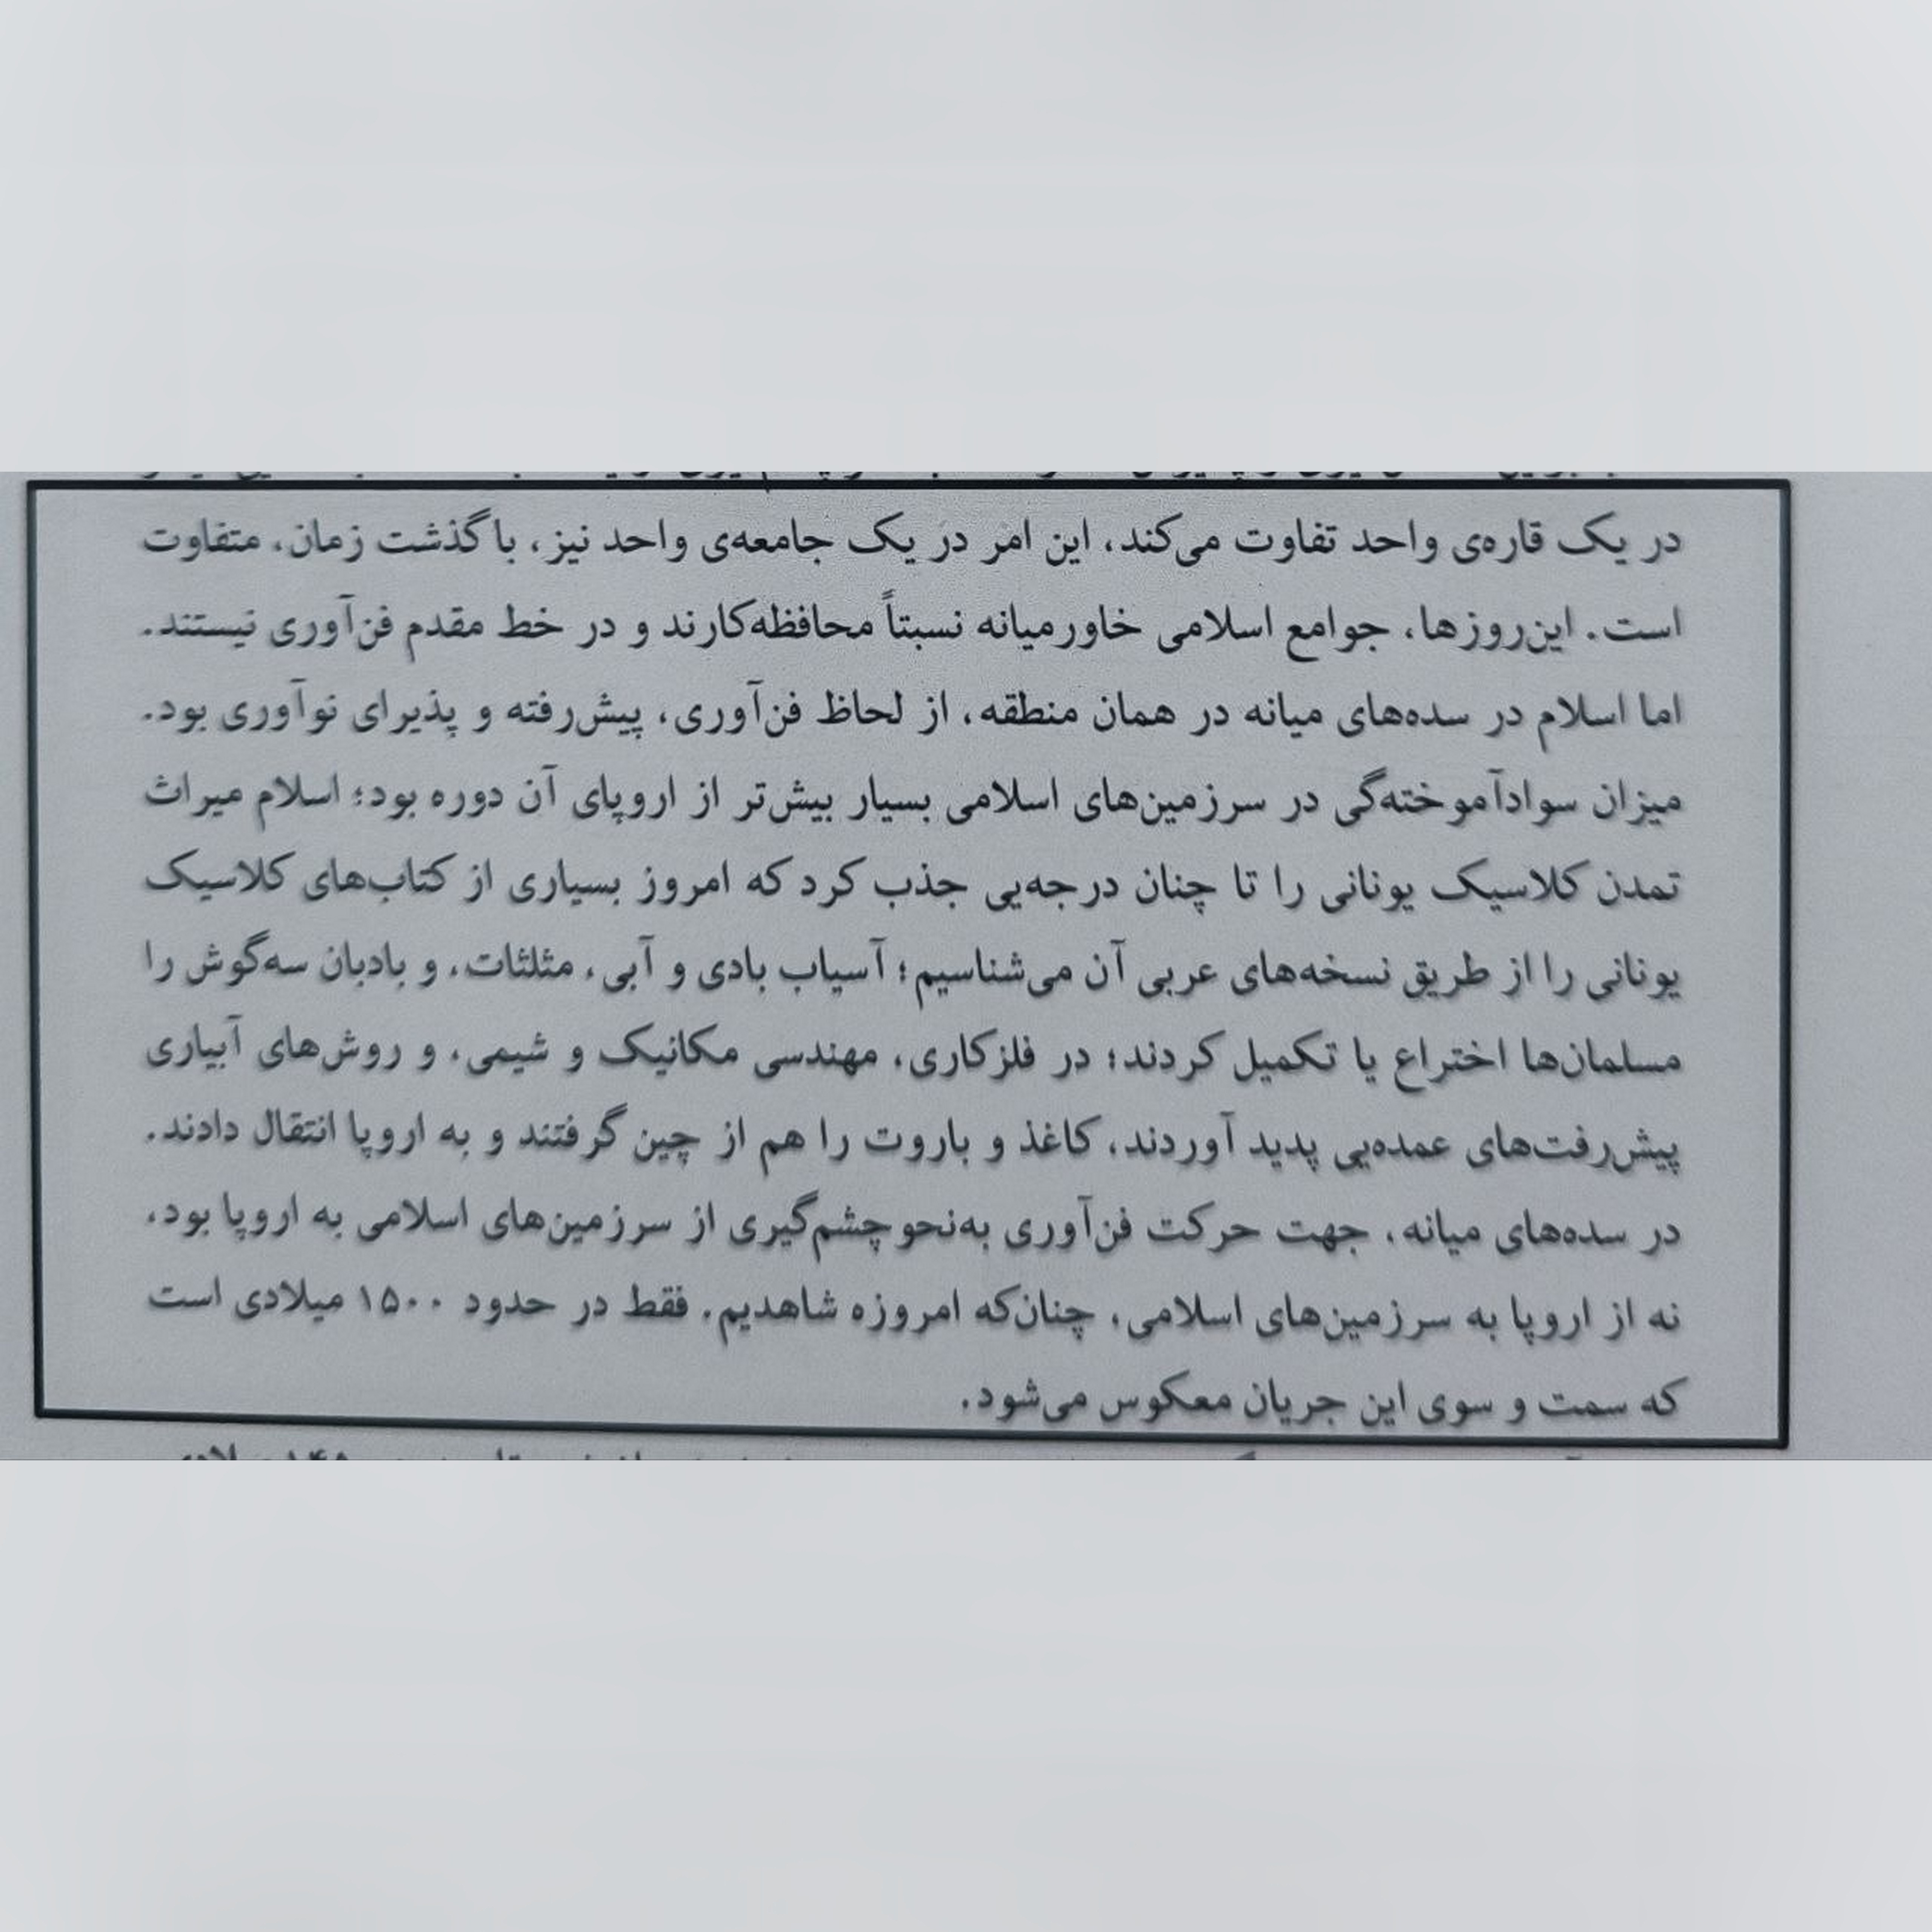 در یک قاره‌ی واحد تفاوت می‌کند، این امر در یک جامعه‌ی واحد نیز، با گذشت زمان، متفاوت
است. این‌روزها، جوامع اسلامی خاورمیانه نسبتاً محافظه‌کارند و در خط مقدم فن‌آوری نیستند.
اما اسلام در سده‌های میانه در همان منطقه، از لحاظ فن‌آوری، پیش‌رفته و پذیرای نوآوری بود.
میزان سوادآموخته‌گی در سرزمین‌های اسلامی بسیار بیش‌تر از اروپای آن دوره بود؛ اسلام میراث
تمدن کلاسیک یونانی را تا چنان درجه‌یی جذب کرد که امروز بسیاری از کتاب‌های کلاسیک
یونانی را از طریق نسخه‌های عربی آن می‌شناسیم؛ آسیاب بادی و آبی، مثلثات، و بادبان سه‌گوش را
مسلمان‌ها اختراع یا تکمیل کردند؛ در فلزکاری، مهندسی مکانیک و شیمی، و روش‌های آبیاری
پیش‌رفت‌های عمده‌یی پدید آوردند، کاغذ و باروت را هم از چین گرفتند و به اروپا انتقال دادند.
در سده‌های میانه، جهت حرکت فن‌آوری به‌نحو چشم‌گیری از سرزمین‌های اسلامی به اروپا بود،
نه از اروپا به سرزمین‌های اسلامی، چنان‌که امروزه شاهدیم. فقط در حدود ۱۵۰۰ میلادی است
که سمت و سوی این جریان معکوس می‌شود.